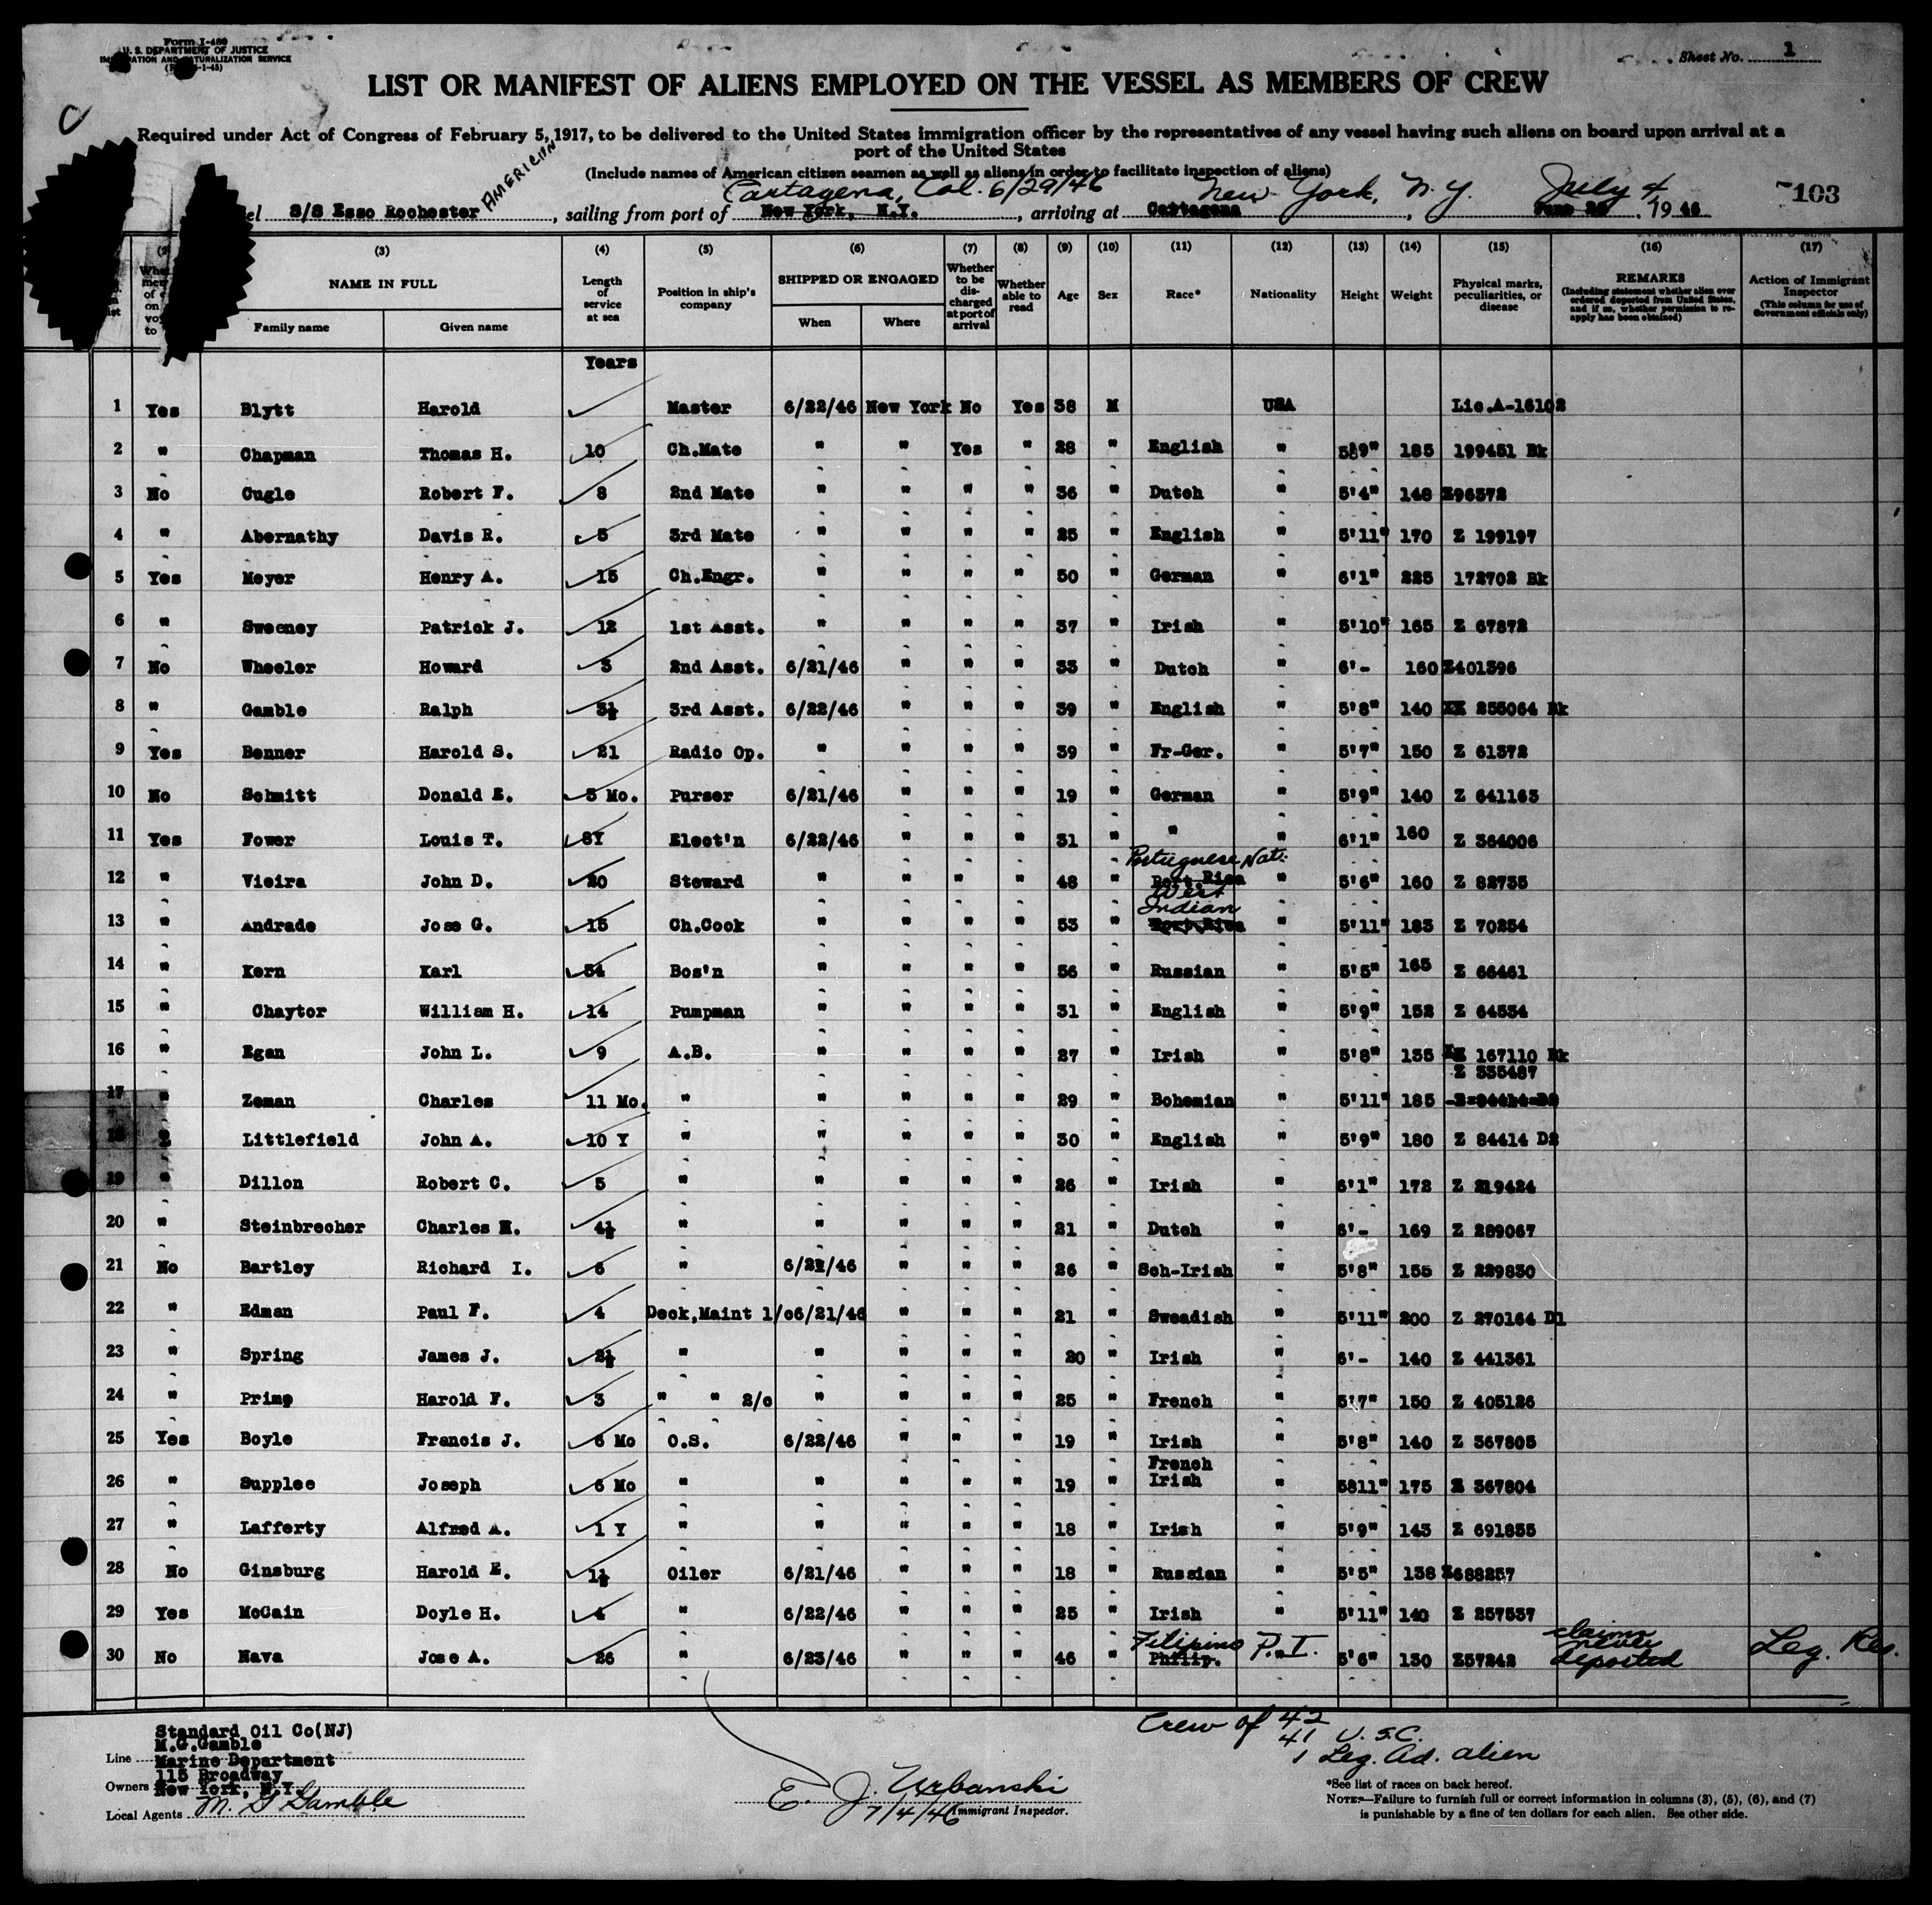 Form I-480
U. S. DEPARTMENT OF JUSTICE
IMMIGRATION AND NATURALIZATION SERVICE
Sheet No. 1
LIST OR MANIFEST OF ALIENS EMPLOYED ON THE VESSEL AS MEMBERS OF CREW
Required under Act of Congress of February 5, 1917, to be delivered to the United States immigration officer by the representatives of any vessel having such aliens on board upon arrival at a
port of the United States
(Include names of American citizen seamen as well as aliens in order to facilitate inspection of aliens)
AMERICAN
Cartagena, Col. 6/29/46 New York, N.Y. July 4,
S/S Esso Rochester, sailing from port of New York, N.Y., arriving at Cartagena, 1946 7103
(3) (4) (5) (6) (7) (8) (9) (10) (11) (12) (13) (14) (15) (16) (17)
NAME IN FULL Family name Given name
Length of service at sea
Position in ship's company
SHIPPED OR ENGAGED When Where
Whether to be discharged at port of arrival
Whether able to read
Age Sex Race* Nationality Height Weight
Physical marks, peculiarities, or disease
REMARKS (Including statement whether alien ever ordered deported from United States, and if so, whether permission to re-apply has been obtained)
Action of Immigrant Inspector (This column for use of Government officials only)
Years
1 Yes Blytt Harold Master 6/22/46 New York No Yes 38 M USA Lic.A-16102
2 " Chapman Thomas H. 10 Ch.Mate " " Yes " 28 " English " 5'9" 185 199451 Bk
3 No Cugle Robert F. 8 2nd Mate " " " " 36 " Dutch " 5'4" 148 Z96372
4 " Abernathy Davis R. 5 3rd Mate " " " " 25 " English " 5'11" 170 Z 199197
5 Yes Meyer Henry A. 15 Ch.Engr. " " " " 50 " German " 6'1" 225 172702 Bk
6 " Sweeney Patrick J. 12 1st Asst. " " " " 37 " Irish " 5'10" 165 Z 67872
7 No Wheeler Howard 3 2nd Asst. 6/21/46 " " " 33 " Dutch " 6'- 160 Z401396
8 " Gamble Ralph 3½ 3rd Asst. 6/22/46 " " " 39 " English " 5'8" 140 255064 Bk
9 Yes Benner Harold S. 21 Radio Op. " " " " 39 " Fr-Ger. " 5'7" 150 Z 61372
10 No Schmitt Donald E. 5 Mo. Purser 6/21/46 " " " 19 " German " 5'9" 140 Z 641163
11 Yes Fower Louis T. 8Y Elect'n 6/22/46 " " " 31 " " " 6'1" 160 Z 364006
Portuguese Nat.
12 " Vieira John D. 20 Steward " " " " 48 " Port.Rica " 5'6" 160 Z 82735
West
Indian
13 " Andrade Jose G. 15 Ch.Cook " " " " 53 " Port.Rica " 5'11" 183 Z 70254
14 " Kern Karl 34 Bos'n " " " " 56 " Russian " 5'5" 165 Z 66461
15 " Chaytor William H. 14 Pumpman " " " " 31 " English " 5'9" 152 Z 64534
16 " Egan John L. 9 A.B. " " " " 27 " Irish " 5'8" 135 167110 Bk
Z 335487
17 " Zeman Charles 11 Mo. " " " " " 29 " Bohemian " 5'11" 185
18 " Littlefield John A. 10 Y " " " " " 30 " English " 5'9" 180 Z 84414 D2
19 " Dillon Robert C. 5 " " " " " 26 " Irish " 6'1" 172 Z 219424
20 " Steinbrecher Charles H. 4½ " " " " " 21 " Dutch " 6'- 169 Z 289067
21 No Bartley Richard I. 6 " 6/21/46 " " " 26 " Sch-Irish " 5'8" 155 Z 229830
22 " Edman Paul F. 4 Deck,Maint 1/c 6/21/46 " " " 21 " Sweadish " 5'11" 200 Z 270164 D1
23 " Spring James J. 2½ " " " " " 20 " Irish " 6'- 140 Z 441361
24 " Primp Harold F. 3 " " 2/c " " " " 25 " French " 5'7" 150 Z 405126
25 Yes Boyle Francis J. 6 Mo O.S. 6/22/46 " " " 19 " Irish " 5'8" 140 Z 367805
French
26 " Supplee Joseph 6 Mo " " " " " 19 " Irish " 5'11" 175 Z 367804
27 " Lafferty Alfred A. 1 Y " " " " " 18 " Irish " 5'9" 143 Z 691855
28 No Ginsburg Harold E. 1½ Oiler 6/21/46 " " " 18 " Russian " 5'5" 138 Z688257
29 Yes McCain Doyle H. 4 " 6/22/46 " " " 25 " Irish " 5'11" 140 Z 257537
Filipino P.I. claims never
30 No Nava Jose A. 26 " 6/23/46 " " " 46 " Philip. 5'6" 130 Z57242 deported Leg. Res.
Crew of 42
41 U.S.C.
1 Leg. Ad. alien
Standard Oil Co(NJ)
M.G.Gamble
Line Marine Department
115 Broadway
Owners New York, N.Y.
Local Agents M. G Gamble
E. J. Urbanski
7/4/46 Immigrant Inspector.
*See list of races on back hereof.
NOTE.—Failure to furnish full or correct information in columns (3), (5), (6), and (7)
is punishable by a fine of ten dollars for each alien. See other side.